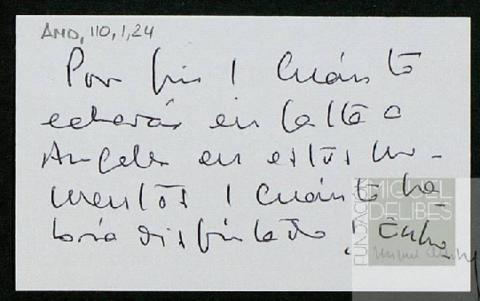 AMD, 110, 1, 24
Por fin! Cuánto
echarás en falta a
Angeles en estos mo-
mentos! Cuánto ha-
bría disfrutado!
FUNDACIÓN
MIGUEL
DELIBES